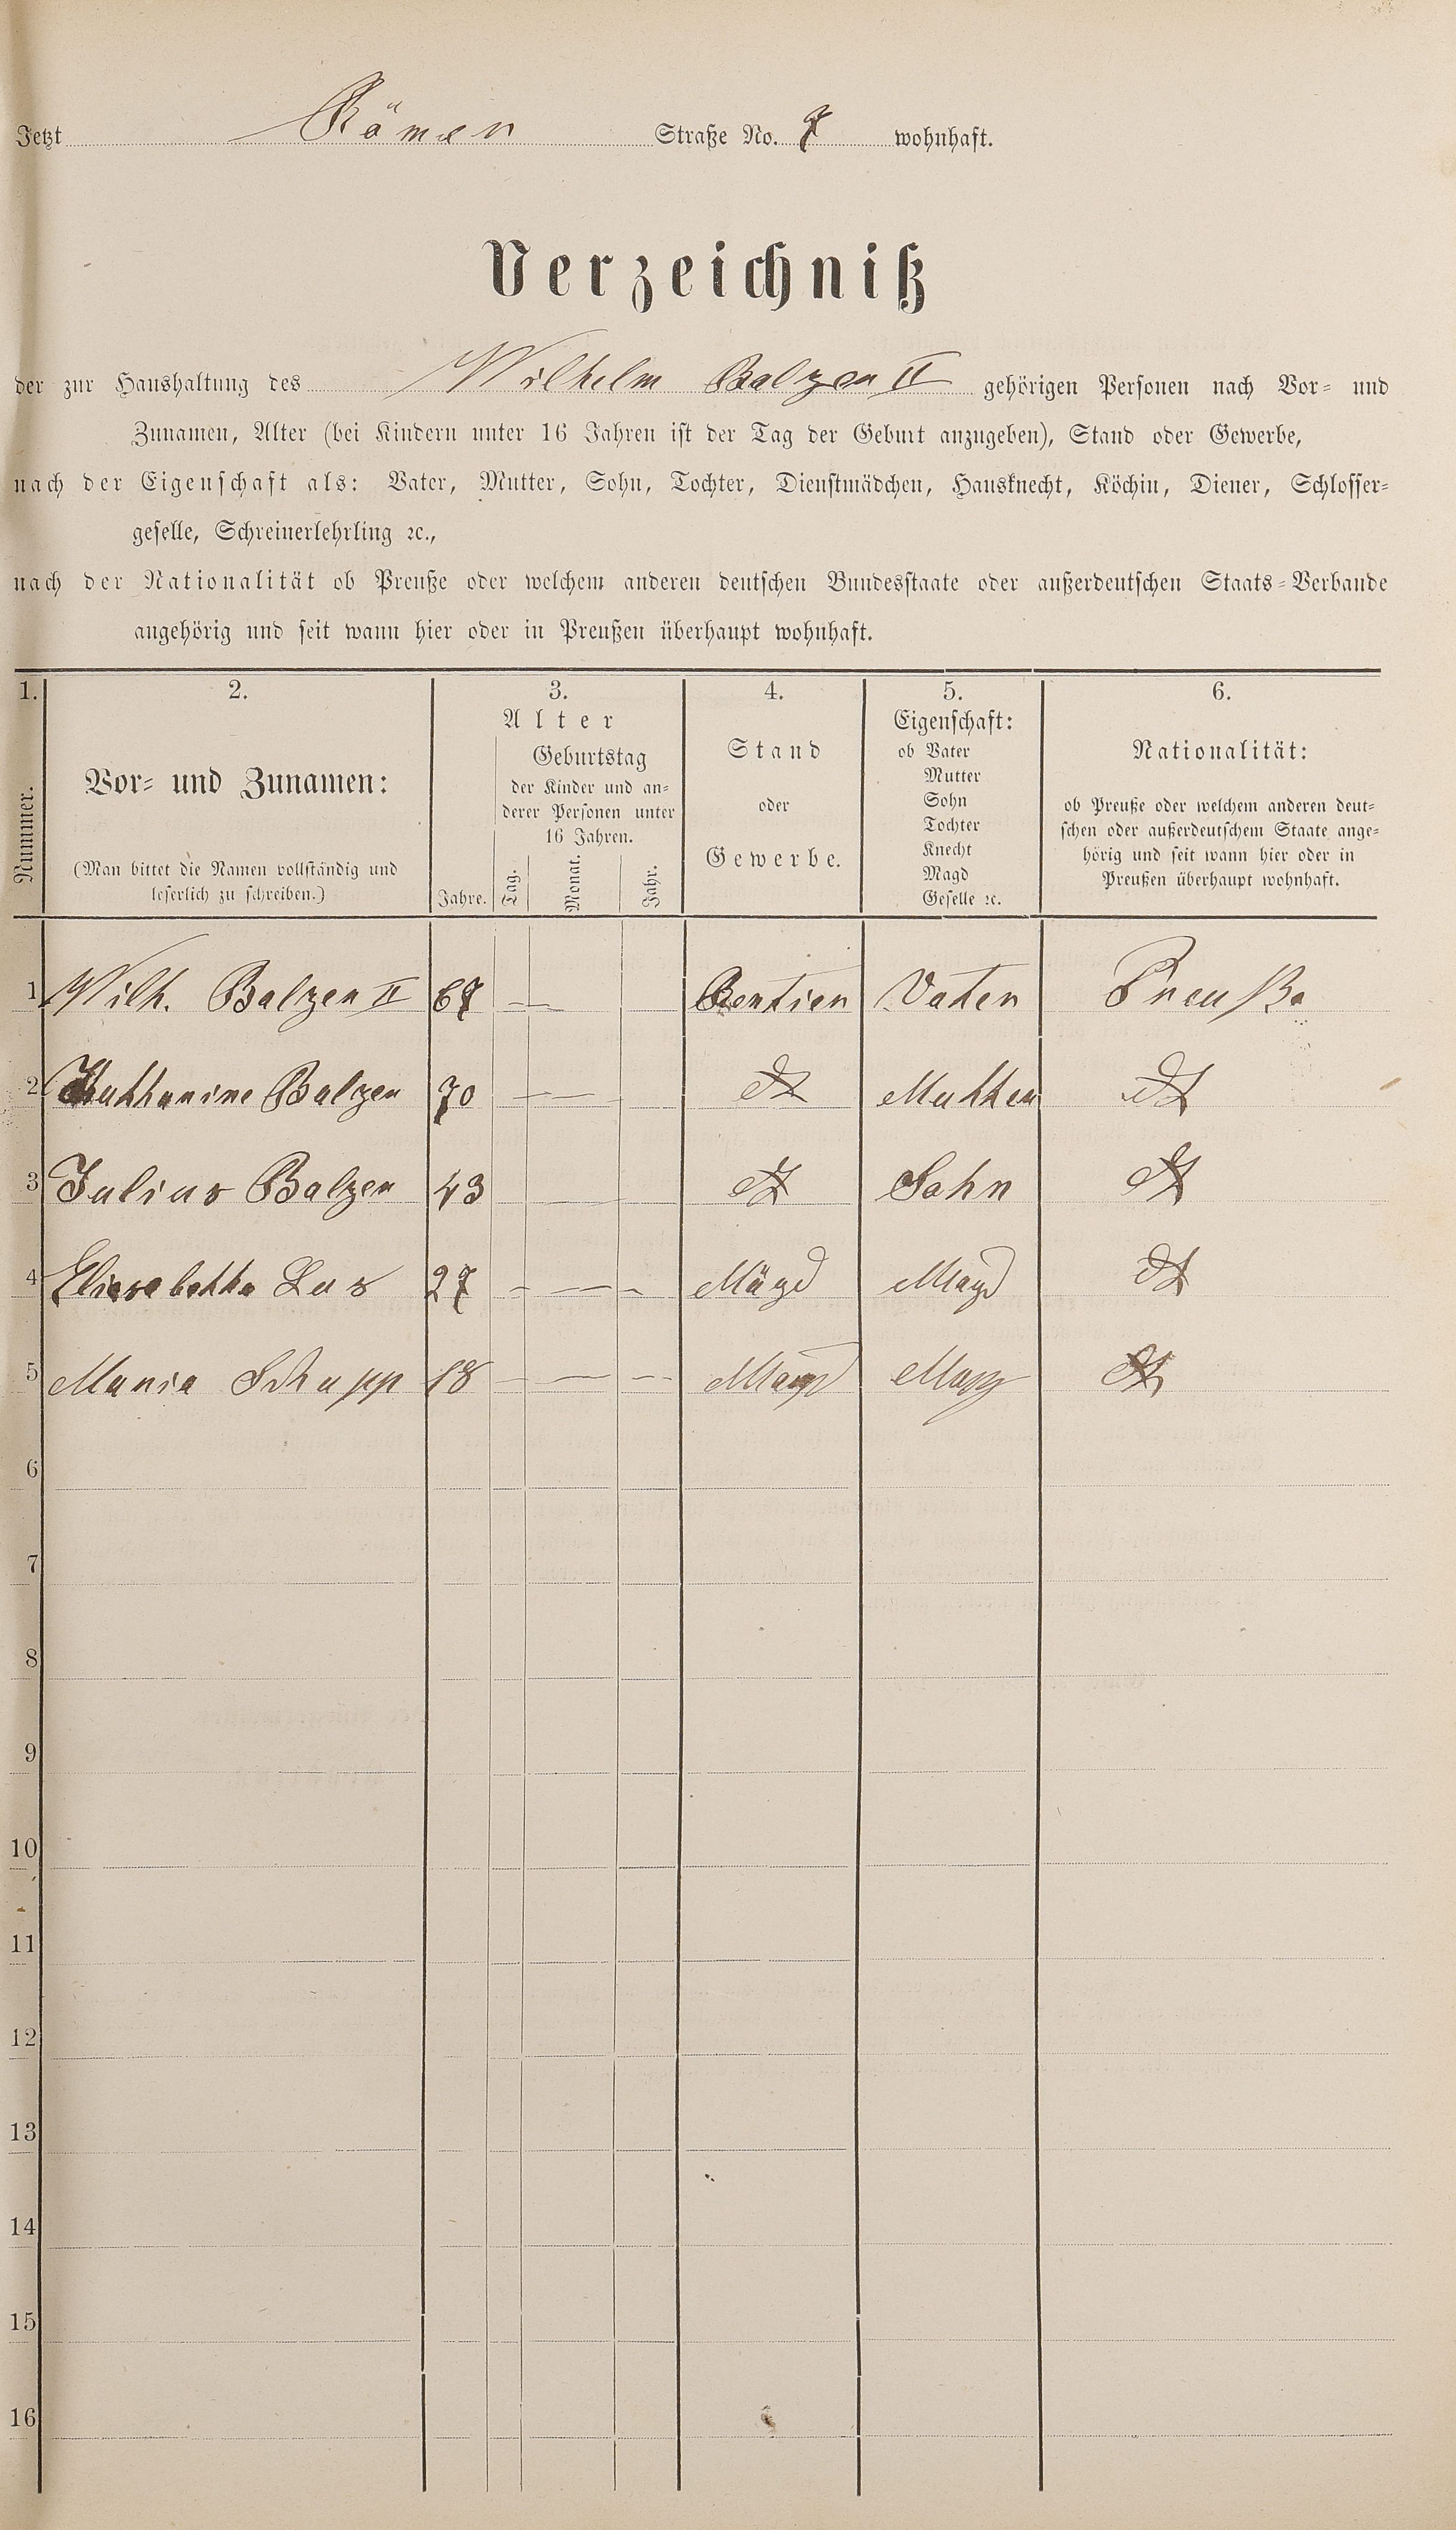 Jetzt Römer Straße No. 7 wohnhaft.
Verzeichniß
der zur Haushaltung des Wilhelm Balzer II gehörigen Personen nach Vor- und
Zunamen, Alter (bei Kindern unter 16 Jahren ist der Tag der Geburt anzugeben), Stand oder Gewerbe,
nach der Eigenschaft als: Vater, Mutter, Sohn, Tochter, Dienstmädchen, Hausknecht, Köchin, Diener, Schlosser-
geselle, Schreinerlehrling ꝛc.,
nach der Nationalität ob Preuße oder welchem anderen deutschen Bundesstaate oder außerdeutschen Staats-Verbande
angehörig und seit wann hier oder in Preußen überhaupt wohnhaft.
1. 2. 3. 4. 5. 6.
Nummer.
Vor- und Zunamen:
(Man bittet die Namen vollständig und
leserlich zu schreiben.)
Alter
Jahre.
Geburtstag
der Kinder und an-
derer Personen unter
16 Jahren.
Tag. Monat. Jahr.
Stand
oder
Gewerbe.
Eigenschaft:
ob Vater
Mutter
Sohn
Tochter
Knecht
Magd
Geselle ꝛc.
Nationalität:
ob Preuße oder welchem anderen deut-
schen oder außerdeutschem Staate ange-
hörig und seit wann hier oder in
Preußen überhaupt wohnhaft.
1 Wilh. Balzer II 67 — Rentier Vater Preuße
2 Katharine Balzer 70 — — dt Mutter dt
3 Julius Balzer 43 — — dt Sohn dt
4 Eliesabetha 27 - — - Mägd Magd dt
5 Maria Schupp 18 - — - - Magd Magd dt
6
7
8
9
10
11
12
13
14
15
16